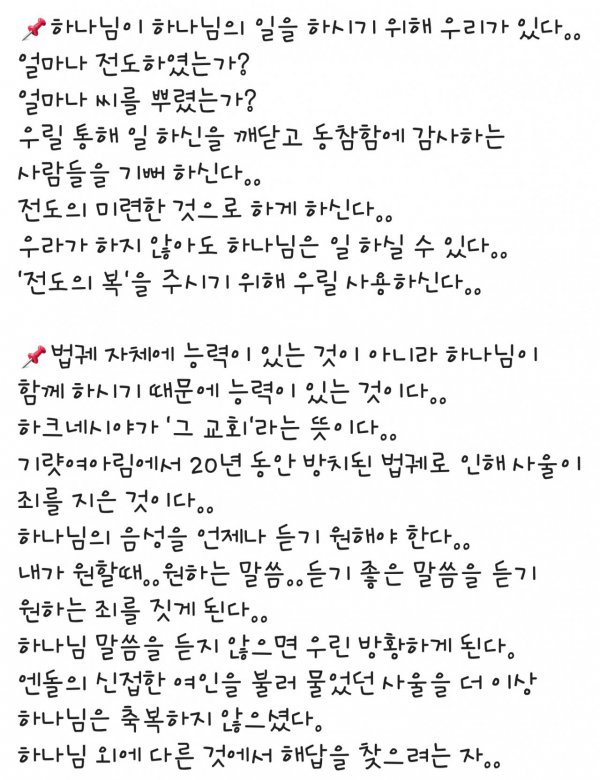 📌하나님이 하나님의 일을 하시기 위해 우리가 있다..
얼마나 전도하였는가?
얼마나 씨를 뿌렸는가?
우릴 통해 일 하신을 깨닫고 동참함에 감사하는
사람들을 기뻐 하신다..
전도의 미련한 것으로 하게 하신다..
우라가 하지 않아도 하나님은 일 하실 수 있다..
'전도의 복'을 주시기 위해 우릴 사용하신다..
📌법궤 자체에 능력이 있는 것이 아니라 하나님이
함께 하시기 때문에 능력이 있는 것이다..
하크네시야가 '그 교회'라는 뜻이다..
기럇여아림에서 20년 동안 방치된 법궤로 인해 사울이
죄를 지은 것이다..
하나님의 음성을 언제나 듣기 원해야 한다..
내가 원할때..원하는 말씀..듣기 좋은 말씀을 듣기
원하는 죄를 짓게 된다..
하나님 말씀을 듣지 않으면 우린 방황하게 된다.
엔돌의 신접한 여인을 불러 물었던 사울을 더 이상
하나님은 축복하지 않으셨다.
하나님 외에 다른 것에서 해답을 찾으려는 자..